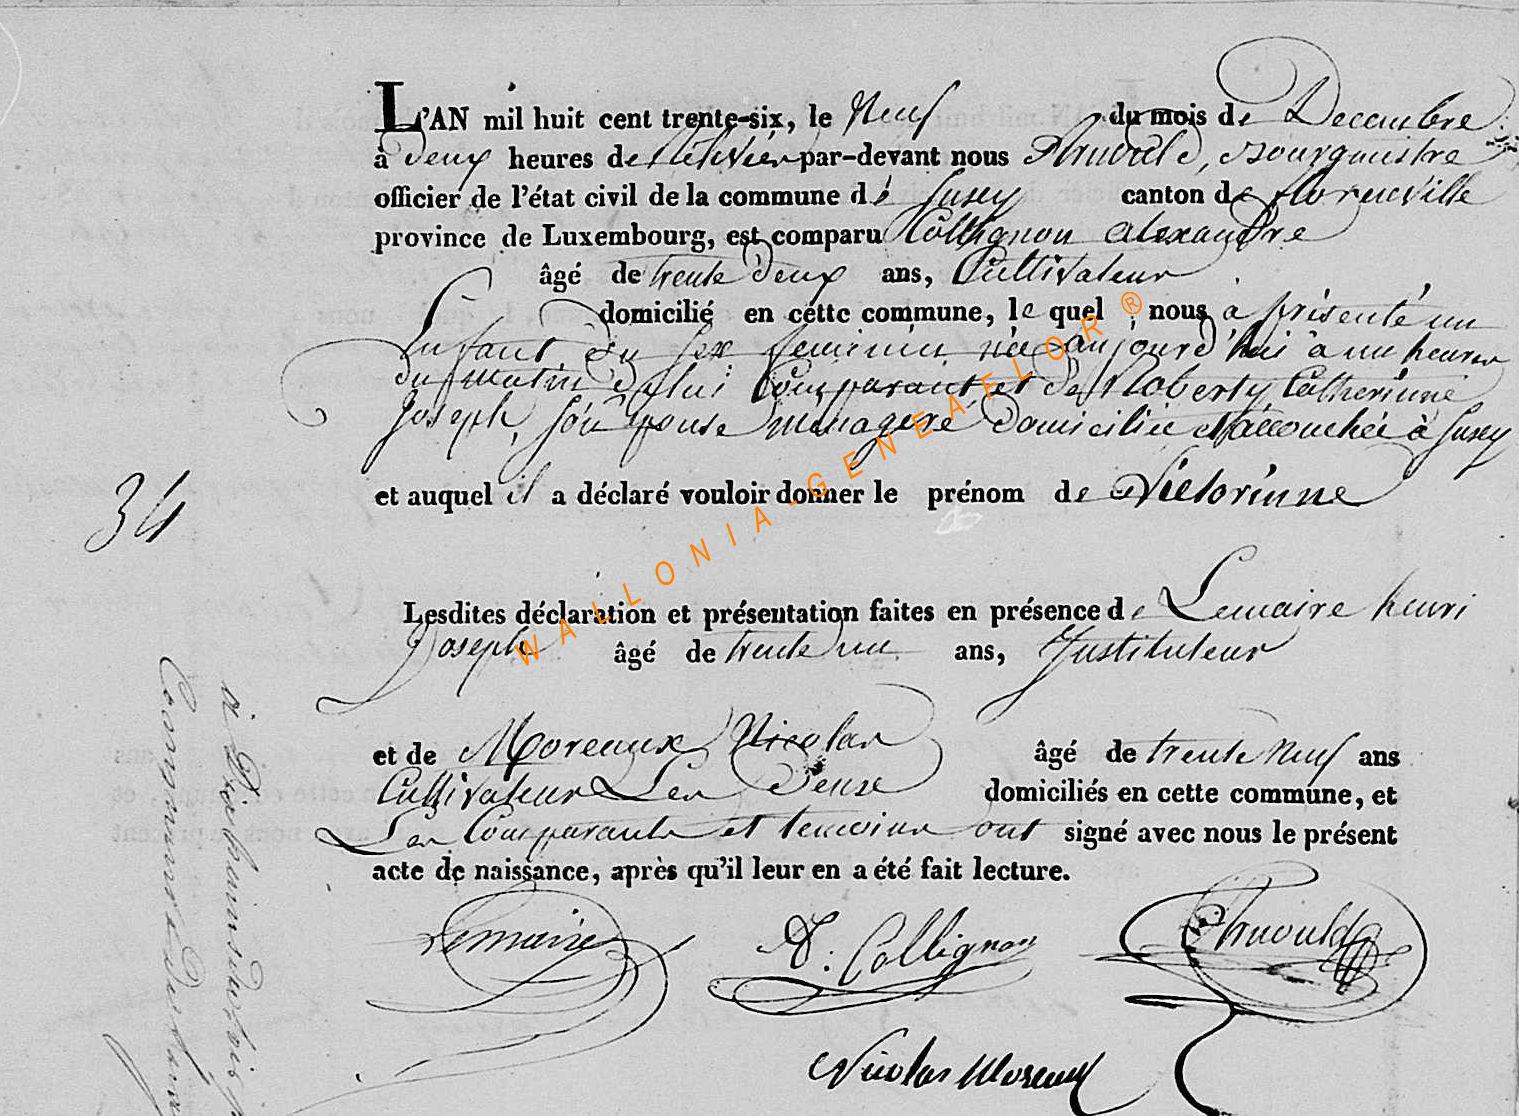 L'AN mil huit cent trente-six, le Neuf du mois de Decembre
à deux heures de relevée par-devant nous Bourgmestre
officier de l'état civil de la commune de Jusey canton de florenville
province de Luxembourg, est comparu Collignon alexandre
âgé de trente deux ans, Cultivateur
domicilié en cette commune, le quel nous a présenté un
Enfant du sex feminin née aujourd'hui à un heures
du matin de lui Comparant et de Roberty Catherinne
Joseph, son epouse menagere domiciliée et accouchée à Jusey
et auquel il a déclaré vouloir donner le prénom de Victorinne
34
Lesdites déclaration et présentation faites en présence de Lemaire henri
Joseph âgé de trente un ans, Instituteur
et de Moreaux Nicolas âgé de trente Neuf ans
Cultivateur Les deux domiciliés en cette commune, et
Les Comparants et temoins ont signé avec nous le présent
acte de naissance, après qu'il leur en a été fait lecture.
Lemaire A. Collignon
Nicolas Moreaux
WALLONIA-GENEAFLOR ®